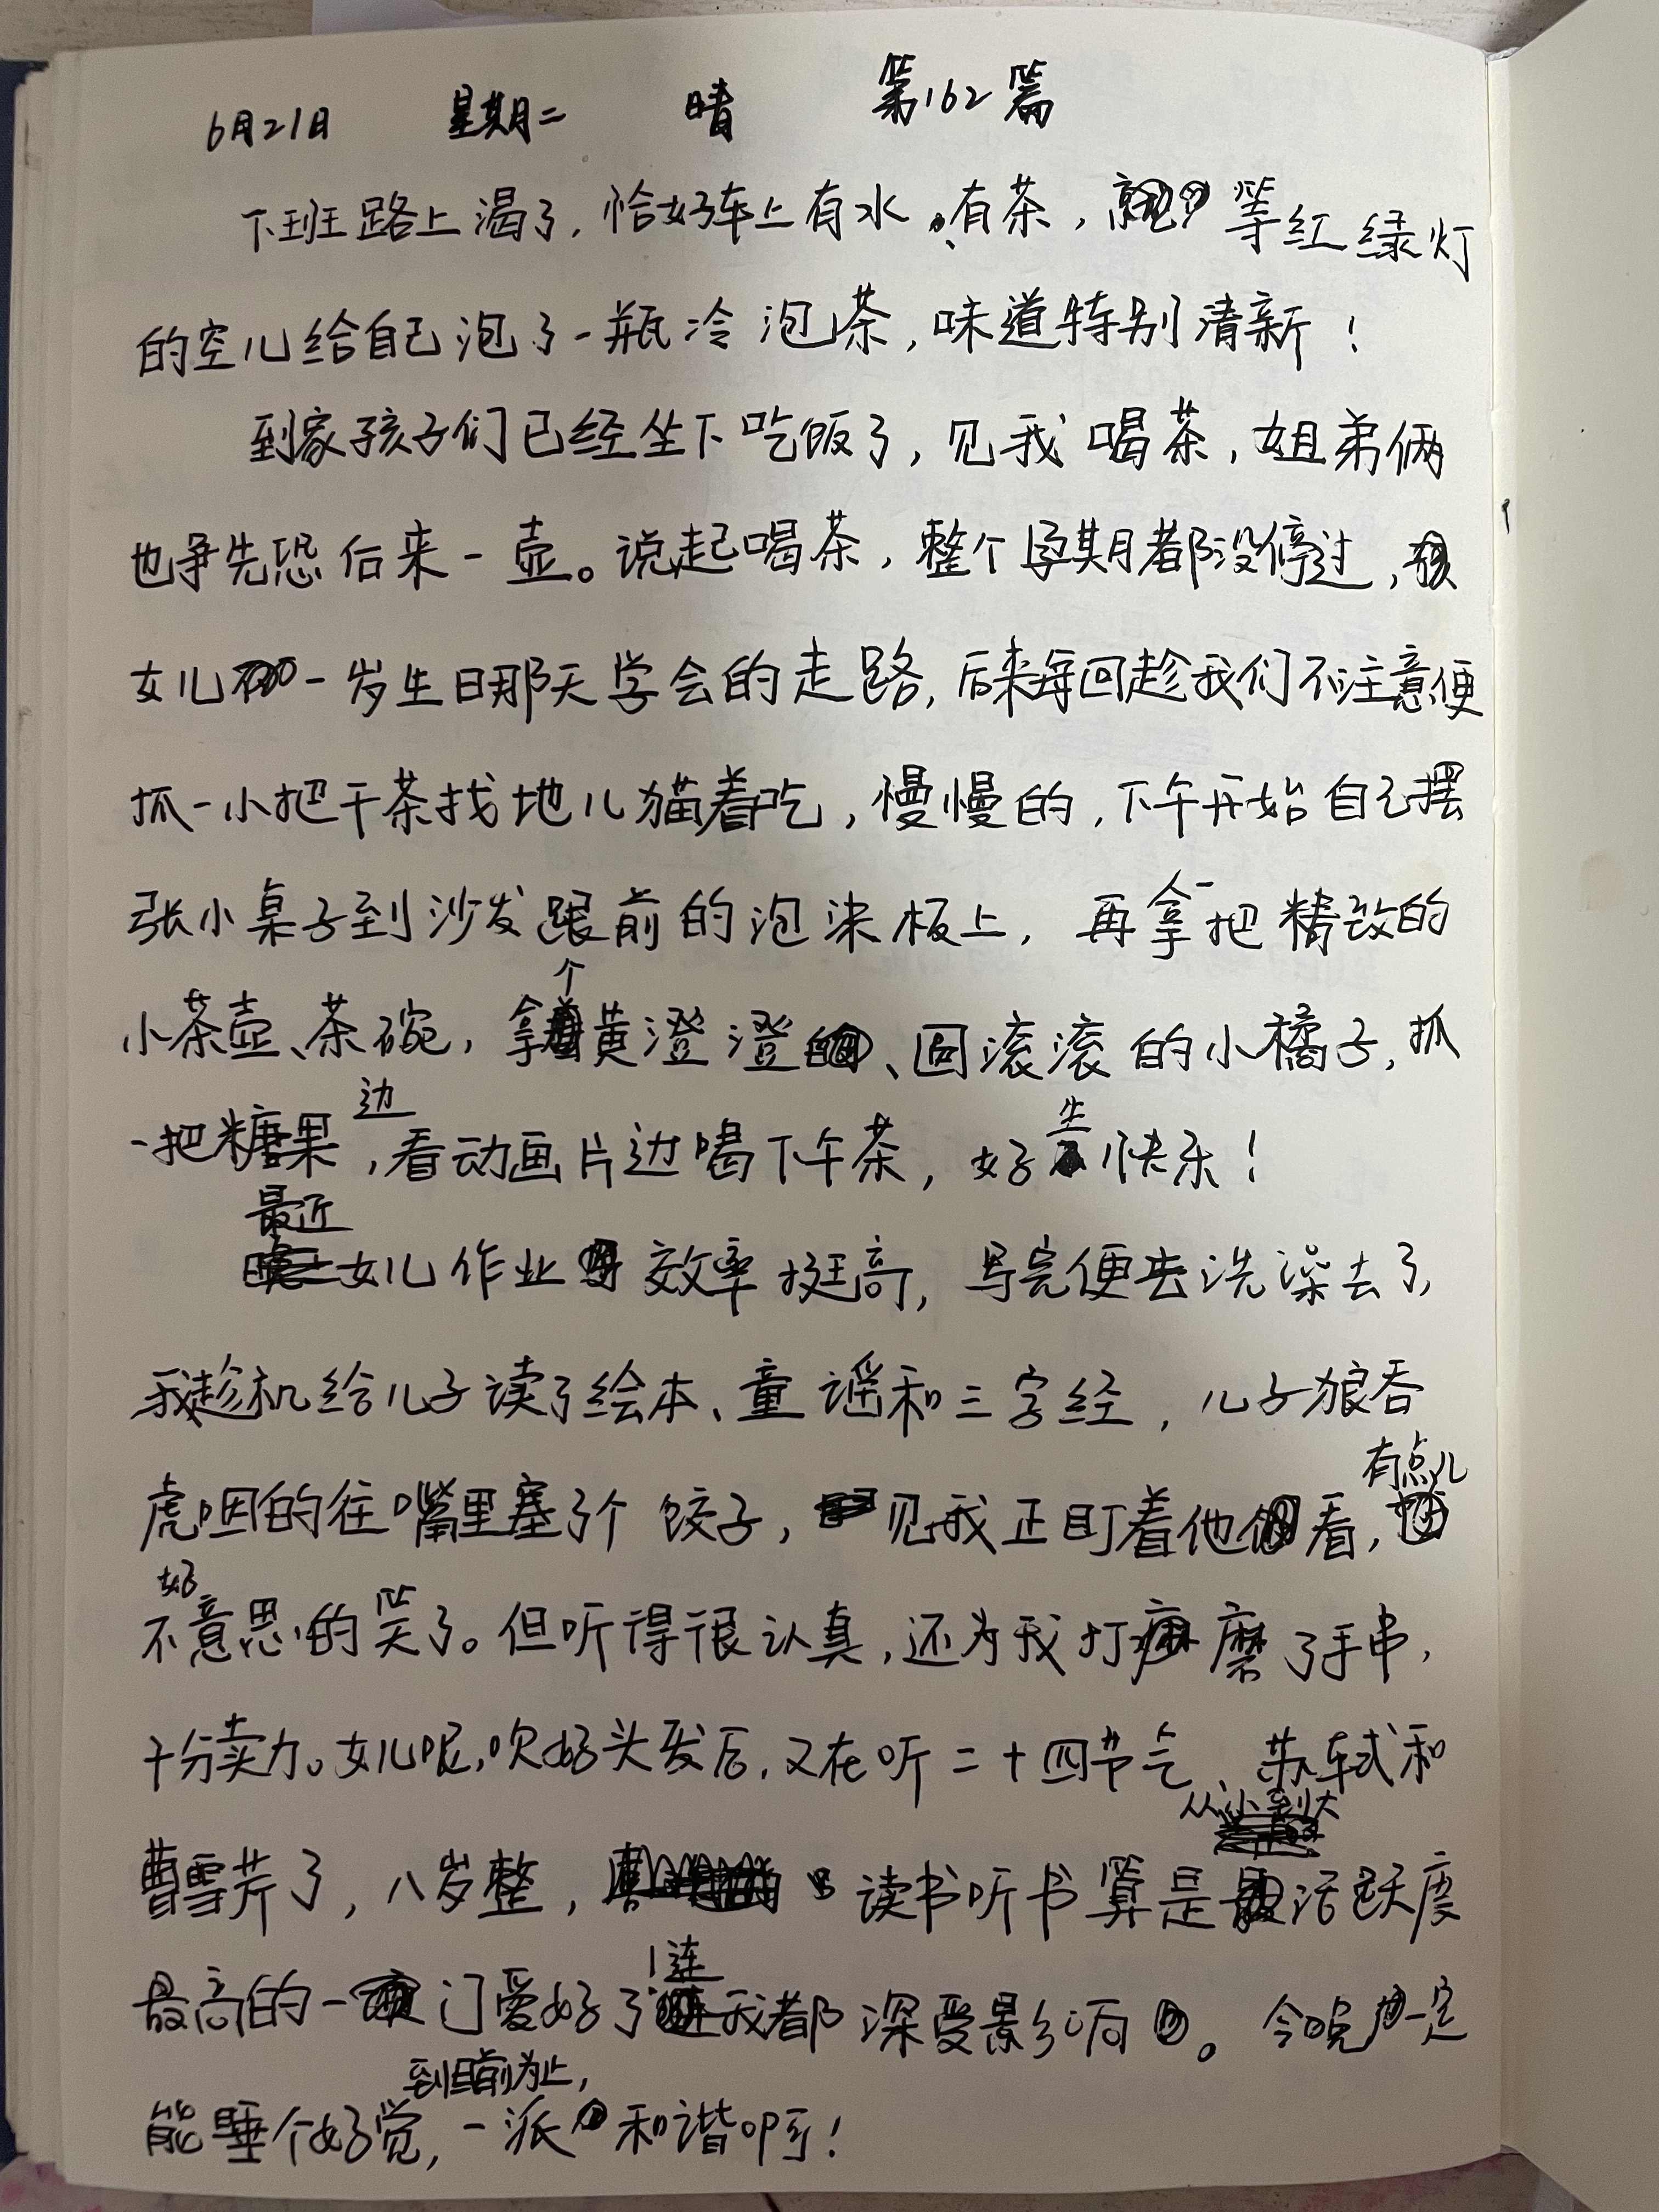 6月21日 星期二 晴 第162篇
下班路上渴了,恰好车上有水、有茶,等红绿灯
的空儿给自己泡了一瓶冷泡茶,味道特别清新!
到家孩子们已经坐下吃饭了,见我喝茶,姐弟俩
也争先恐后来一壶。说起喝茶,整个孕期都没停过,
女儿一岁生日那天学会的走路,后来每回趁我们不注意便
抓一小把干茶找地儿猫着吃,慢慢的,下午开始自己摆
张小桌子到沙发跟前的泡沫板上,再拿一把精致的
小茶壶、茶碗,拿个黄澄澄、圆滚滚的小橘子,抓
一把糖果,边看动画片边喝下午茶,好生快乐!
最近女儿作业效率挺高,写完便去洗澡去了,
我趁机给儿子读了绘本、童谣和三字经,儿子狼吞
虎咽的往嘴里塞了个饺子,见我正盯着他看,有点儿
不好意思的笑了。但听得很认真,还为我打磨了手串,
十分卖力。女儿呢,吹好头发后,又在听二十四节气、苏轼和
曹雪芹了,八岁整,读书听书算是从小到大活跃度
最高的一门爱好了!连我都深受影响。今晚一定
能睡个好觉,到目前为止,一派和谐呀!